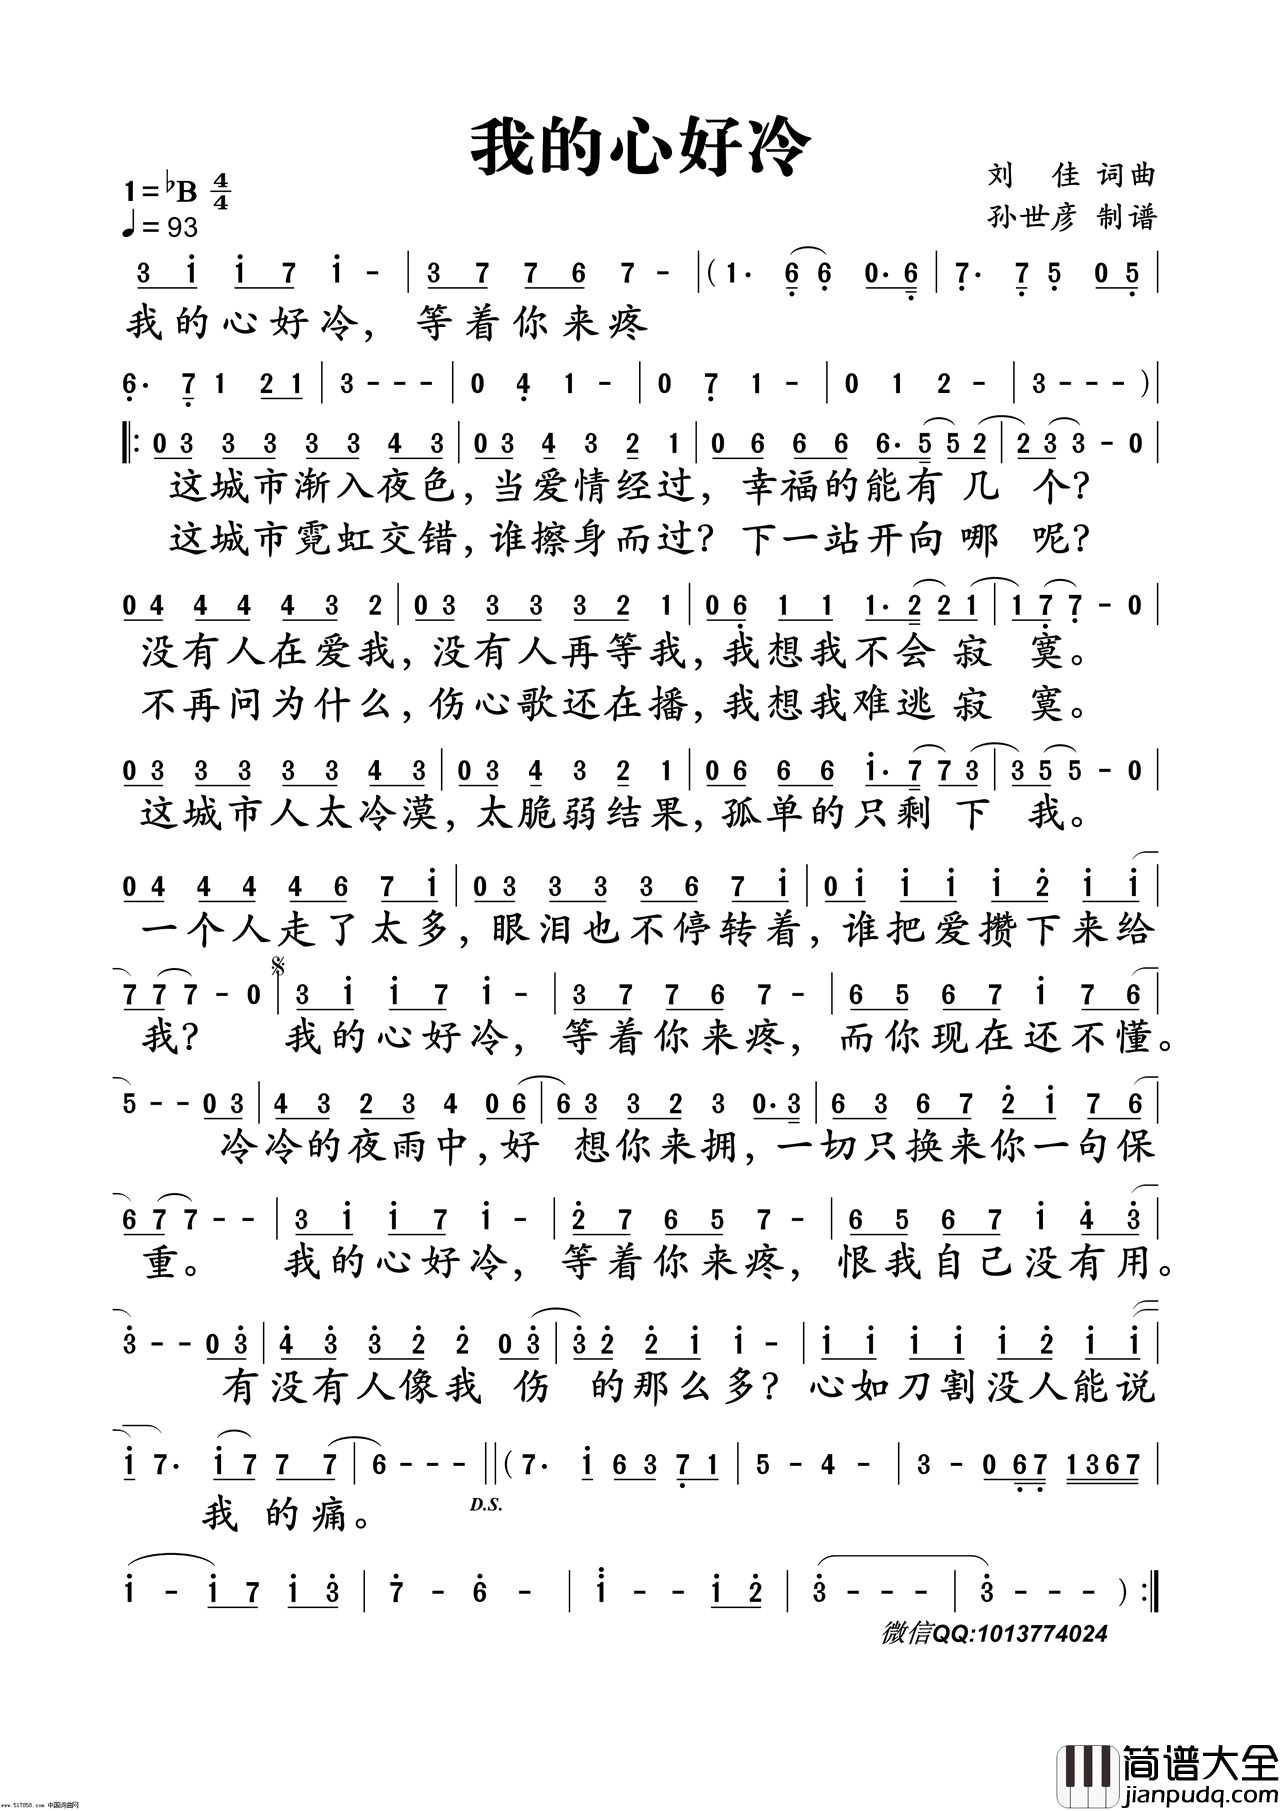 我的心好冷
刘 佳 词曲
1=♭B 4/4
孙世彦 制谱
♩= 93
3 i i 7 i - | 3 7 7 6 7 - |( 1· 6 6 0·6 | 7· 7 5 0 5 |
我的心好冷，等着你来疼
6· 7 1 2 1 | 3 - - - | 0 4 1 - | 0 7 1 - | 0 1 2 - | 3 - - - )
‖: 0 3 3 3 3 3 4 3 | 0 3 4 3 2 1 | 0 6 6 6 6·5 5 2 | 2 3 3 - 0 |
这城市渐入夜色，当爱情经过，幸福的能有几个？
这城市霓虹交错，谁擦身而过？下一站开向哪呢？
0 4 4 4 4 3 2 | 0 3 3 3 3 2 1 | 0 6 1 1 1·2 2 1 | 1 7 7 - 0 |
没有人在爱我，没有人再等我，我想我不会寂寞。
不再问为什么，伤心歌还在播，我想我难逃寂寞。
0 3 3 3 3 3 4 3 | 0 3 4 3 2 1 | 0 6 6 6 i·7 7 3 | 3 5 5 - 0 |
这城市人太冷漠，太脆弱结果，孤单的只剩下我。
0 4 4 4 4 6 7 i | 0 3 3 3 3 6 7 i | 0 i i i i 2 i i |
一个人走了太多，眼泪也不停转着，谁把爱攒下来给
7 7 7 - 0 | 3 i i 7 i - | 3 7 7 6 7 - | 6 5 6 7 i 7 6 |
我？ 我的心好冷，等着你来疼，而你现在还不懂。
5 - - 0 3 | 4 3 2 3 4 0 6 | 6 3 3 2 3 0·3 | 6 3 6 7 2 i 7 6 |
冷冷的夜雨中，好想你来拥，一切只换来你一句保
6 7 7 - - | 3 i i 7 i - | 2 7 6 5 7 - | 6 5 6 7 i 4 3 |
重。 我的心好冷，等着你来疼，恨我自己没有用。
3 - - 0 3 | 4 3 3 2 2 0 3 | 3 2 2 i i - | i i i i i 2 i i |
有没有人像我伤的那么多？心如刀割没人能说
i 7· i 7 7 7 | 6 - - - ‖( 7· i 6 3 7 1 | 5 - 4 - | 3 - 0 6 7 1 3 6 7 |
D.S.
我的痛。
i - i 7 i 3 | 7 - 6 - | i - - i 2 | 3 - - - | 3 - - - ) :‖
微信QQ:1013774024
简谱大全
jianpudq.com
www.517858.com 中国词曲网